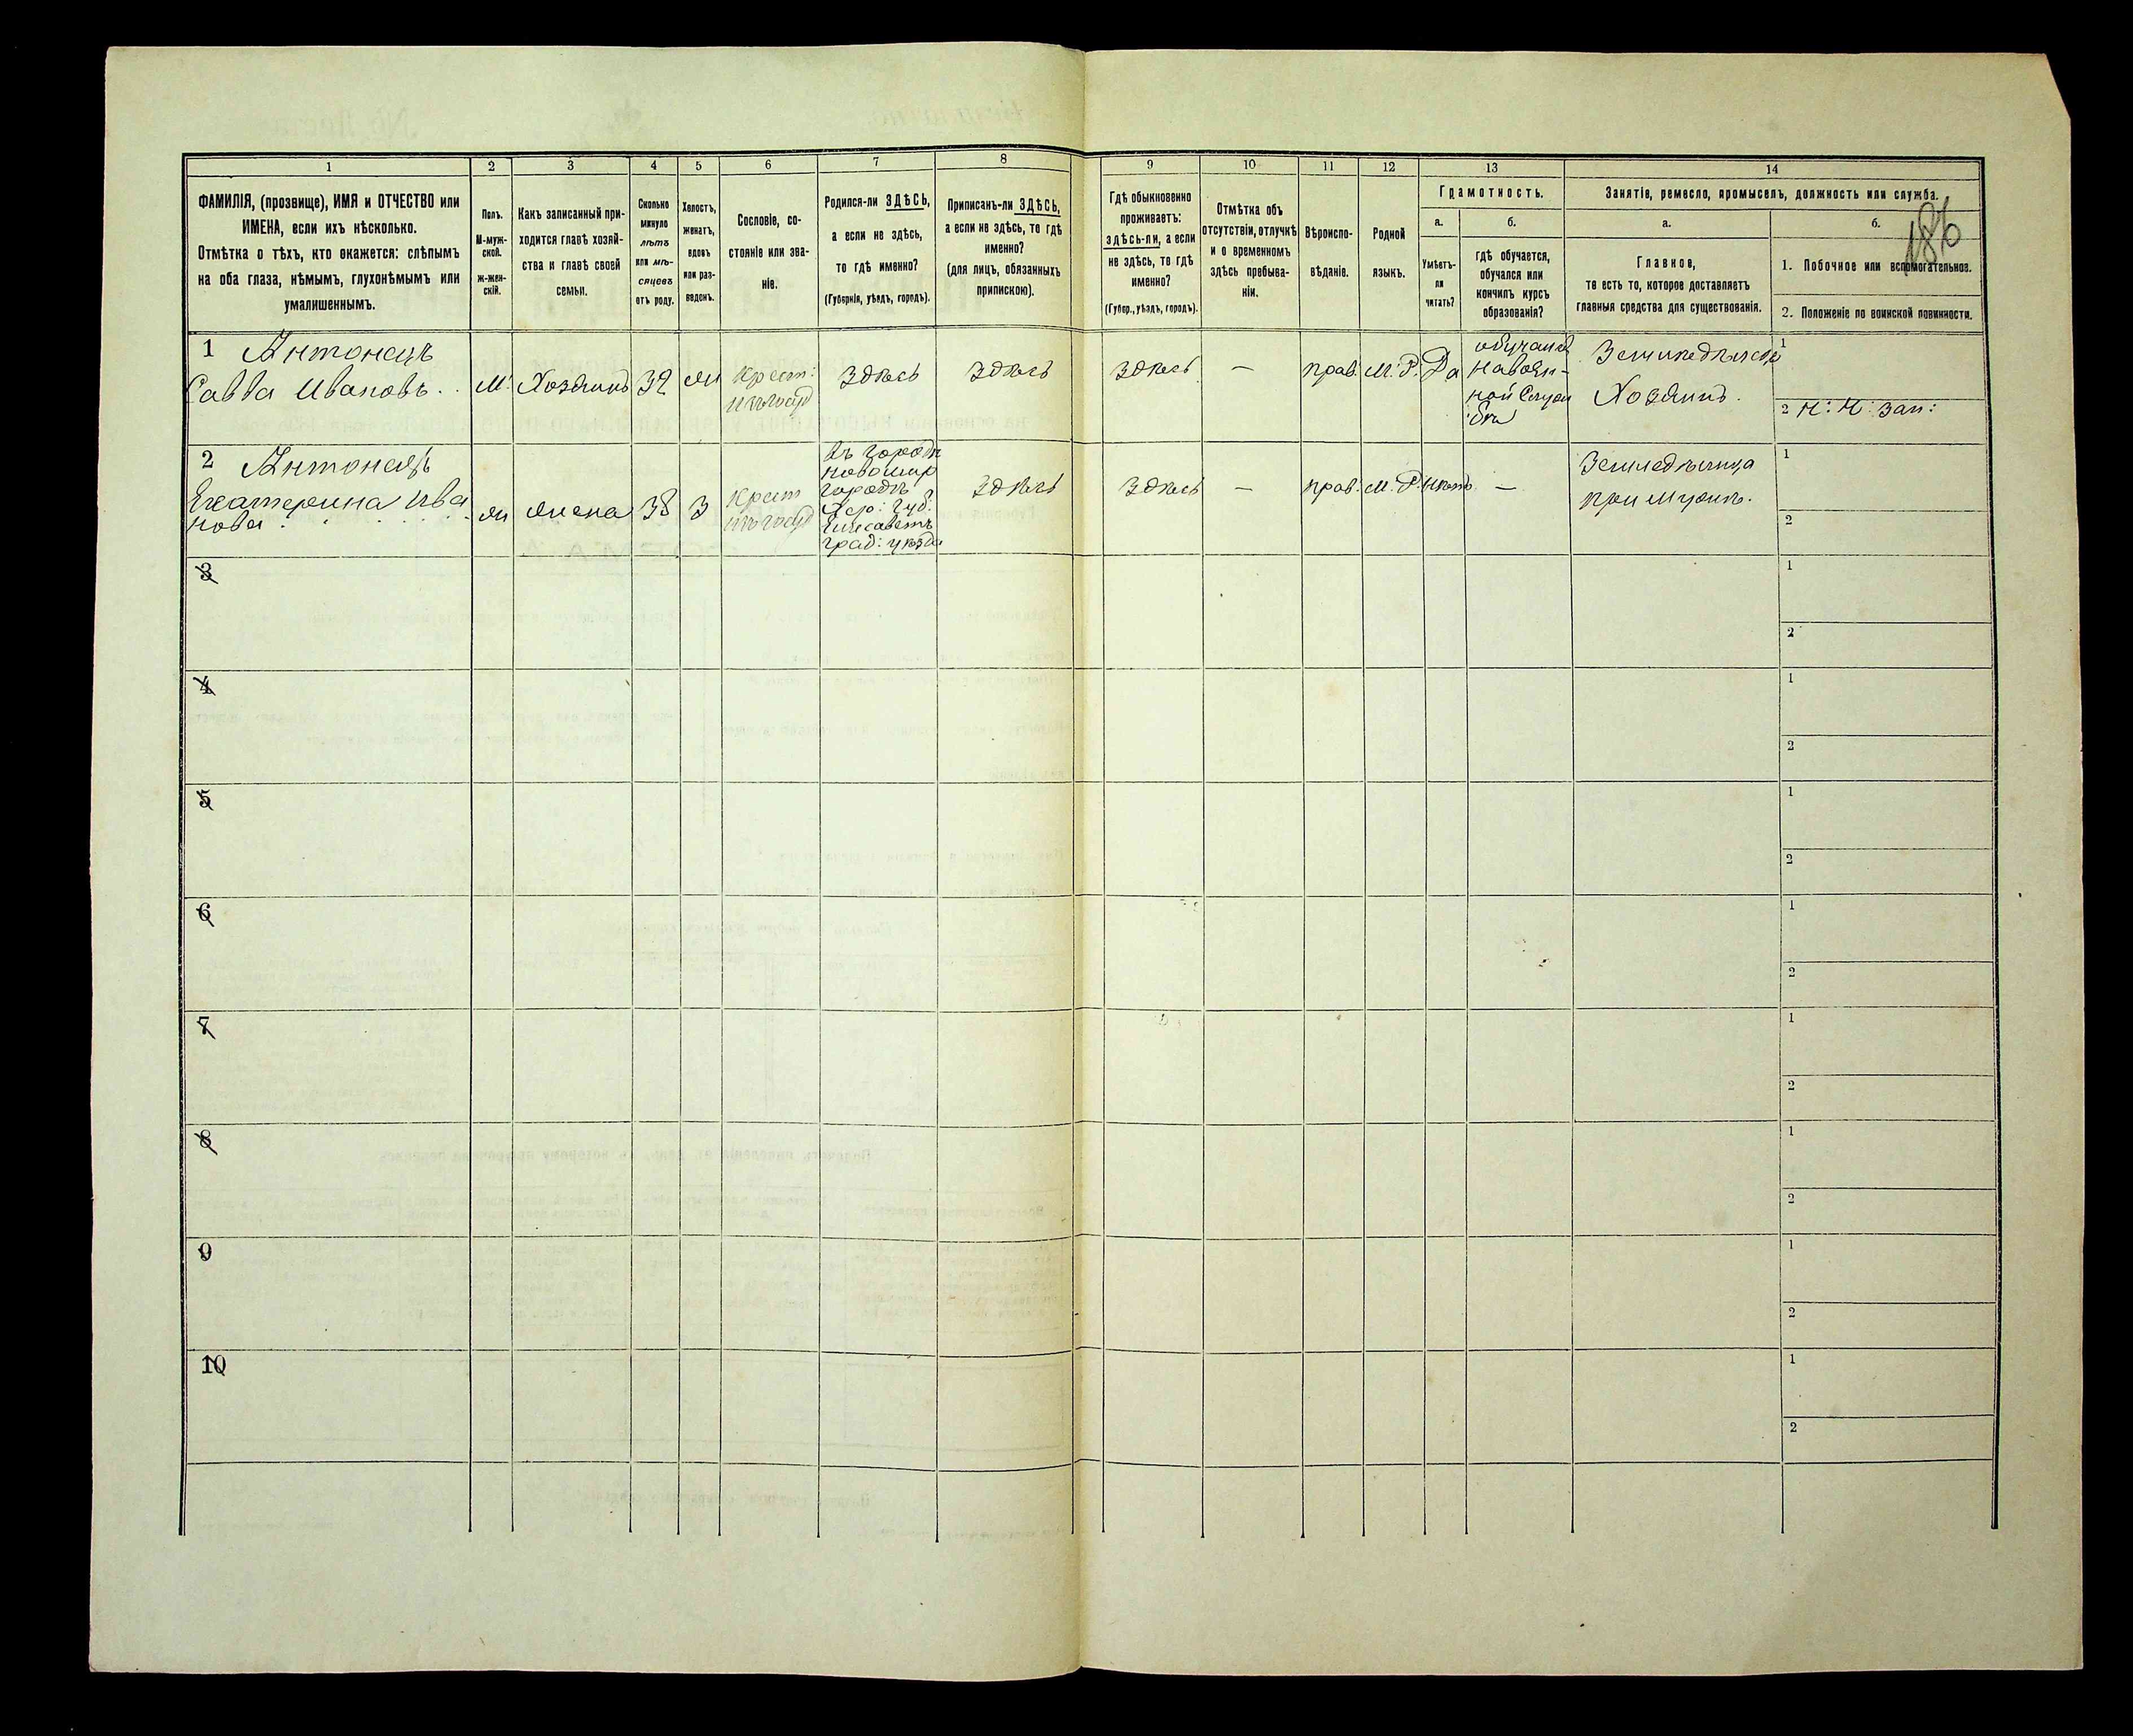 1 2 3 4 5 6 7 8 9 10 11 12 13 14
ФАМИЛІЯ, (прозвище), ИМЯ и ОТЧЕСТВО или
ИМЕНА, если ихъ нѣсколько.
Отмѣтка о тѣхъ, кто окажется: слѣпымъ
на оба глаза, нѣмымъ, глухонѣмымъ или
умалишеннымъ.
Полъ.
М-муж-
ской.
ж-жен-
скій.
Какъ записанный при-
ходится главѣ хозяй-
ства и главѣ своей
семьи.
Сколько
минуло
лѣтъ
или мѣ-
сяцевъ
отъ роду.
Холостъ,
женатъ,
вдовъ
или раз-
веденъ.
Сословіе, со-
стояніе или зва-
ніе.
Родился-ли ЗДѢСЬ,
а если не здѣсь,
то гдѣ именно?
(Губернія, уѣздъ, городъ).
Приписанъ-ли ЗДѢСЬ,
а если не здѣсь, то гдѣ
именно?
(для лицъ, обязанныхъ
припискою).
Гдѣ обыкновенно
проживаетъ:
ЗДѢСЬ-ЛИ, а если
не здѣсь, то гдѣ
именно?
(Губер., уѣздъ, городъ).
Отмѣтка объ
отсутствіи, отлучкѣ
и о временномъ
здѣсь пребыва-
ніи.
Вѣроиспо-
вѣданіе.
Родной
языкъ.
Грамотность.
а.
Умѣетъ-
ли
читать?
б.
гдѣ обучается,
обучался или
кончилъ курсъ
образованія?
Занятіе, ремесло, промыселъ, должность или служба.
а.
Главное,
то есть то, которое доставляетъ
главныя средства для существованія.
б.
1. Побочное или вспомогательное.
2. Положеніе по воинской повинности.
186
1 Антонецъ
Савва Ивановъ.
М.
Хозяинъ
39
Ж
Крест:
изъ госуд
Здѣсь
Здѣсь
Здѣсь
—
прав.
М. Р.
Да
обучался
на воен-
ной служ
бѣ
Земледѣлецъ
Хозяинъ.
1
2 Н: Н: зап:
2 Антонецъ
Екатерина Ива
нова
Ж
Жена
38
З
Крест
изъ госуд
въ городѣ
новомир
городѣ
Хер: губ:
Елисавет
град: уѣзда
Здѣсь
Здѣсь
—
прав.
М. Р.
Нѣтъ
—
Земледѣлица
при мужѣ.
1
2
3
1
2
4
1
2
5
1
2
6
1
2
7
1
2
8
1
2
9
1
2
10
1
2